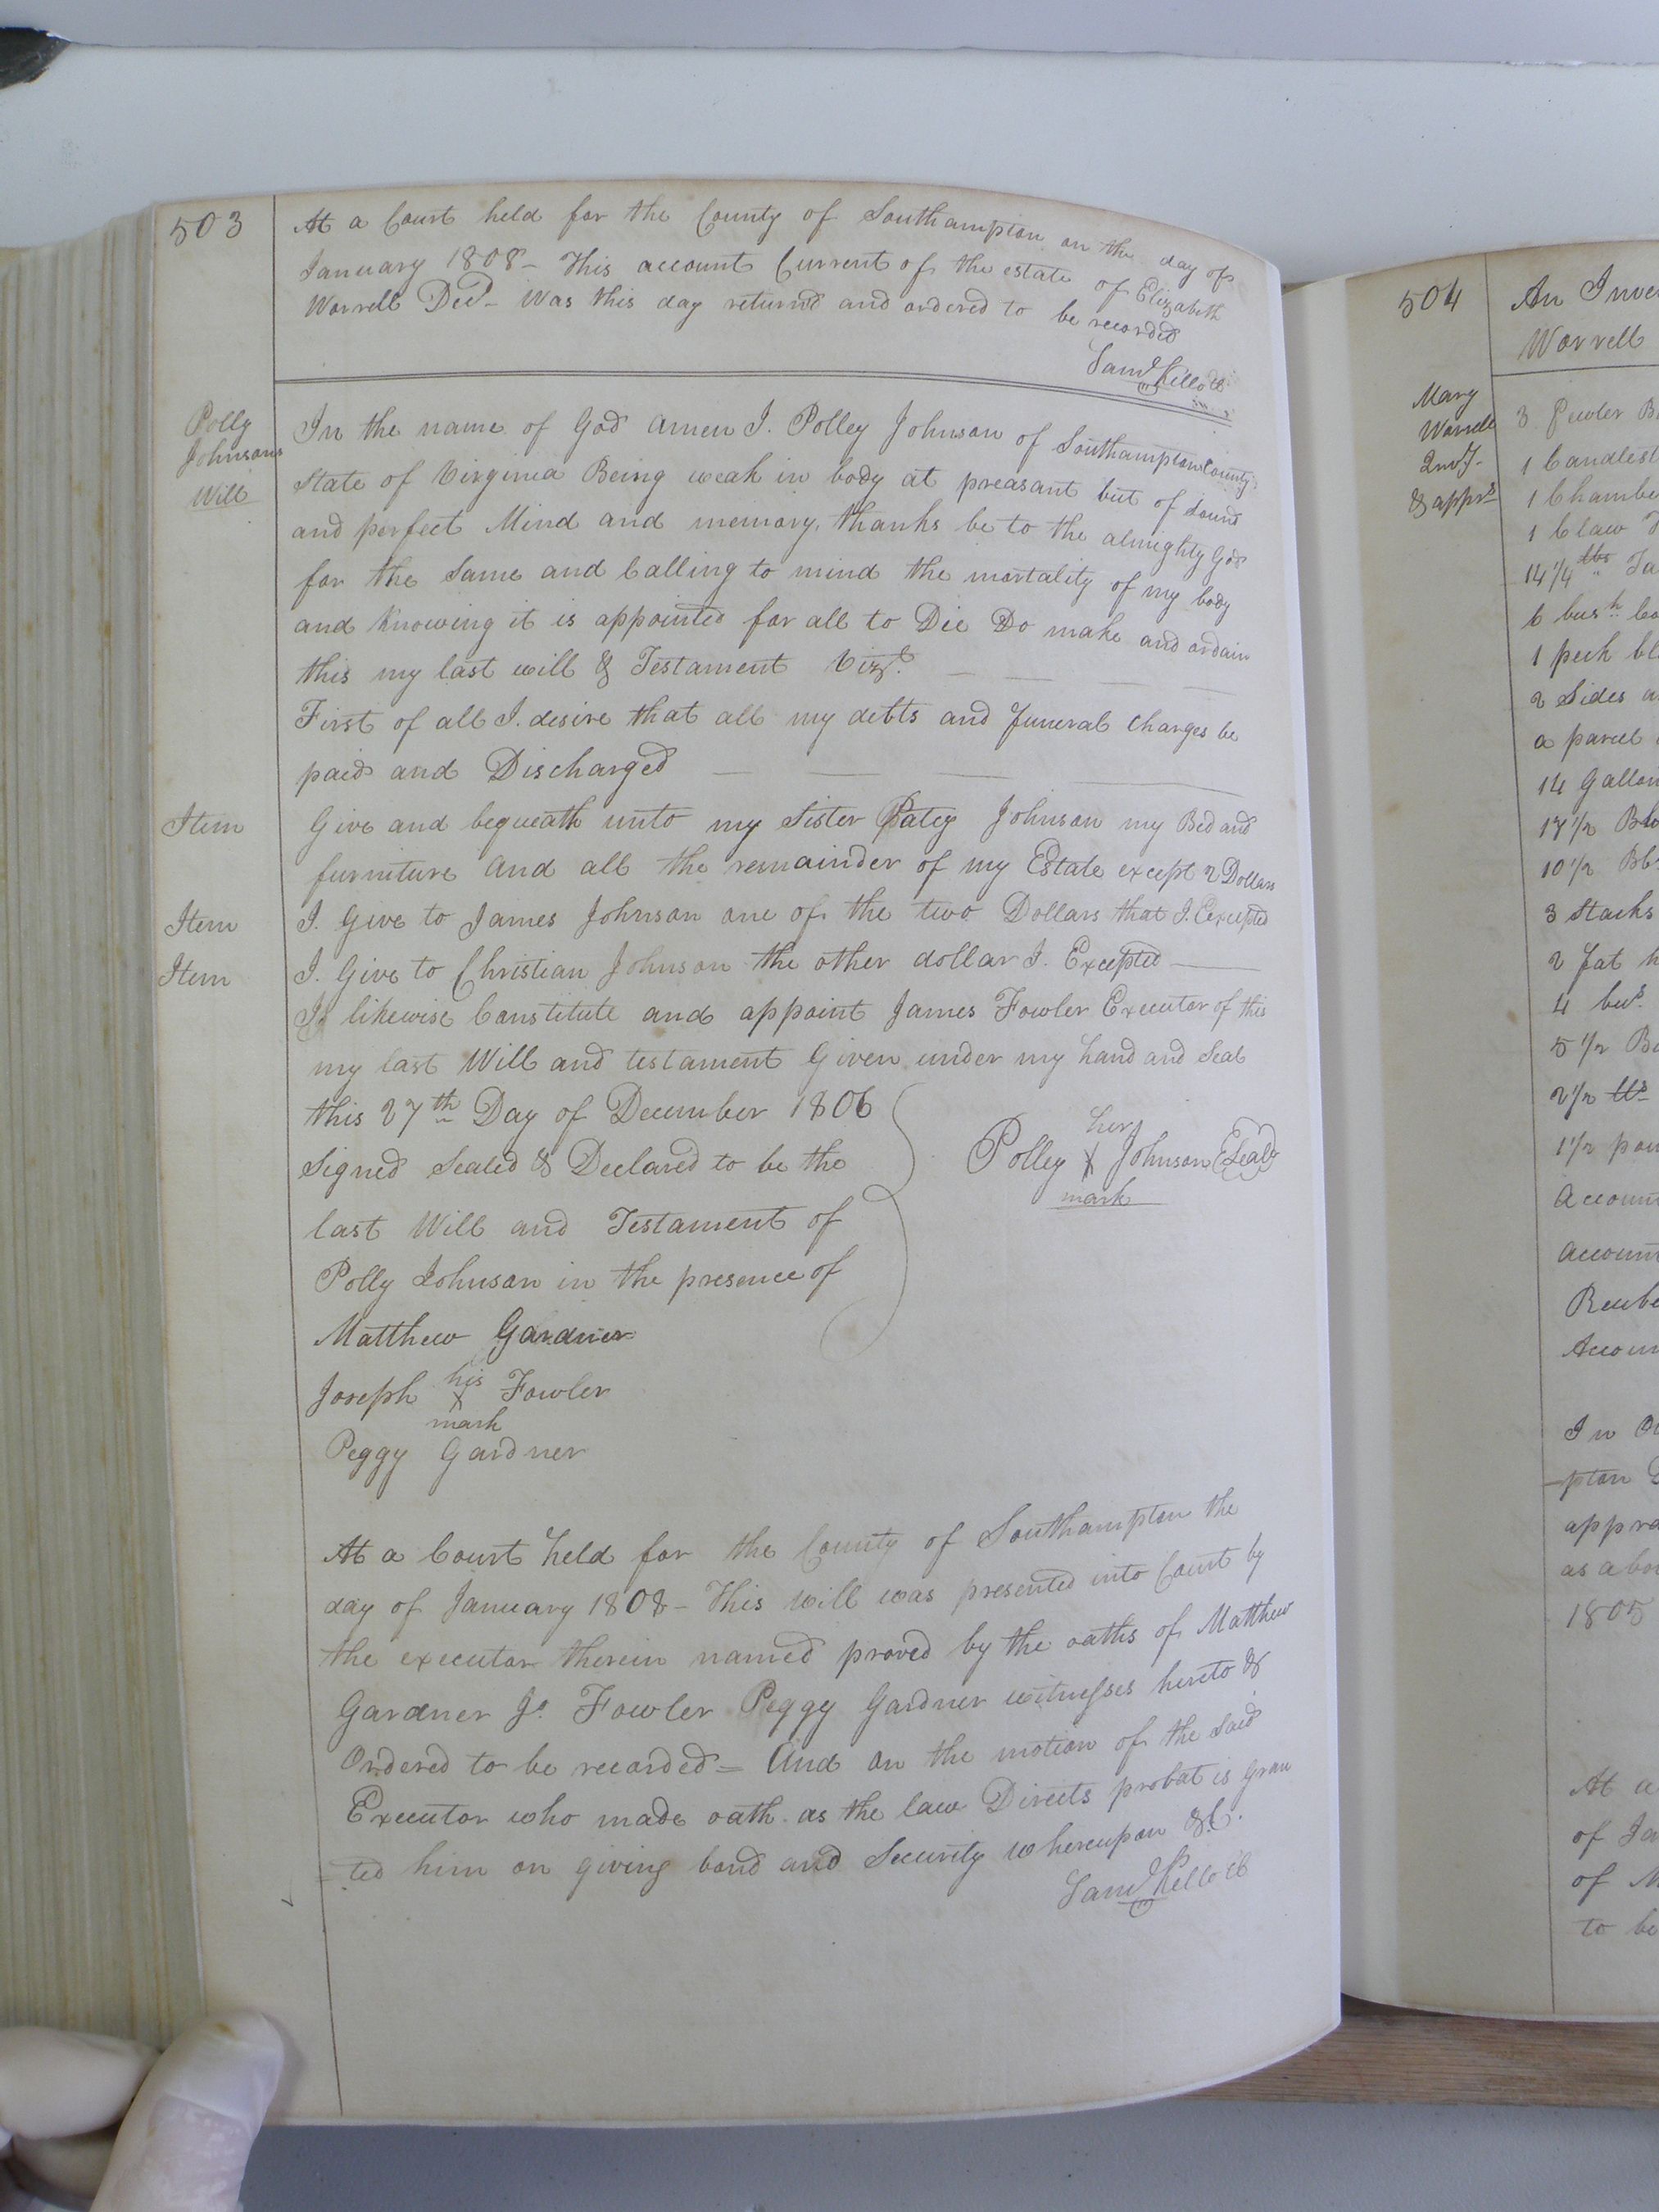 503
At a Court held for the County of Southampton on the day of
January 1808 - This account Current of the estate of Elizabeth
Worrell Decd - Was this day returnd and ordered to be recorded
Saml Kello
Polly
Johnsons
Will
In the name of God amen I. Polley Johnson of Southampton County
State of Virginia Being weak in body at preasant but of Sound
and perfect Mind and memory, thanks be to the almighty God
for the Same and Calling to mind the mortality of my body
and Knowing it is appointed for all to Die Do make and ordain
this my last will & Testament Vizt.
First of all I. desire that all my debts and funeral Charges be
paid and Discharged
Item Give and bequeath unto my Sister Patey Johnson my Bed and
furniture and all the remainder of my Estate except 2 Dollars
Item I. Give to James Johnson one of the two Dollars that I. Excepted
Item I. Give to Christian Johnson the other dollar I. Excepted
I likewise Constitute and appoint James Fowler Executor of this
my last Will and testament Given under my hand and Seal
this 27th Day of December 1806
Signed Sealed & Declared to be the
last Will and Testament of
Polly Johnson in the presence of
her
Polley X Johnson (Seal)
mark
Matthew Gardner
Joseph his X mark Fowler
Peggy Gardner
At a Court held for the County of Southampton the
day of January 1808 - This Will was presented into Court by
the executor therein named proved by the oaths of Matthew
Gardner Jo. Fowler Peggy Gardner witnesses hereto &
Ordered to be recorded = And on the motion of the Said
Executor who made oath as the law Directs probat is gran
=ted him on giving bond and Security whereupon &C.
Saml Kello
504
An Inve
Worrell
Mary
Worrell
Invy.
& apprs
3 Pewter B
1 Candlest
1 Chambe
1 Claw
14 1/4 lbs Ta
6 bush
1 peck bl
2 Sides
a parcel
14 Gallon
17 1/2
10 1/2 Bb
3 Stacks
2 fat h
4 bus.
5 1/2
2 1/2 lb
1 1/2 pou
Accoun
account
Reube
Accoun
In O
-pton
appra
as abo
1805
At a
of Ja
of M
to be